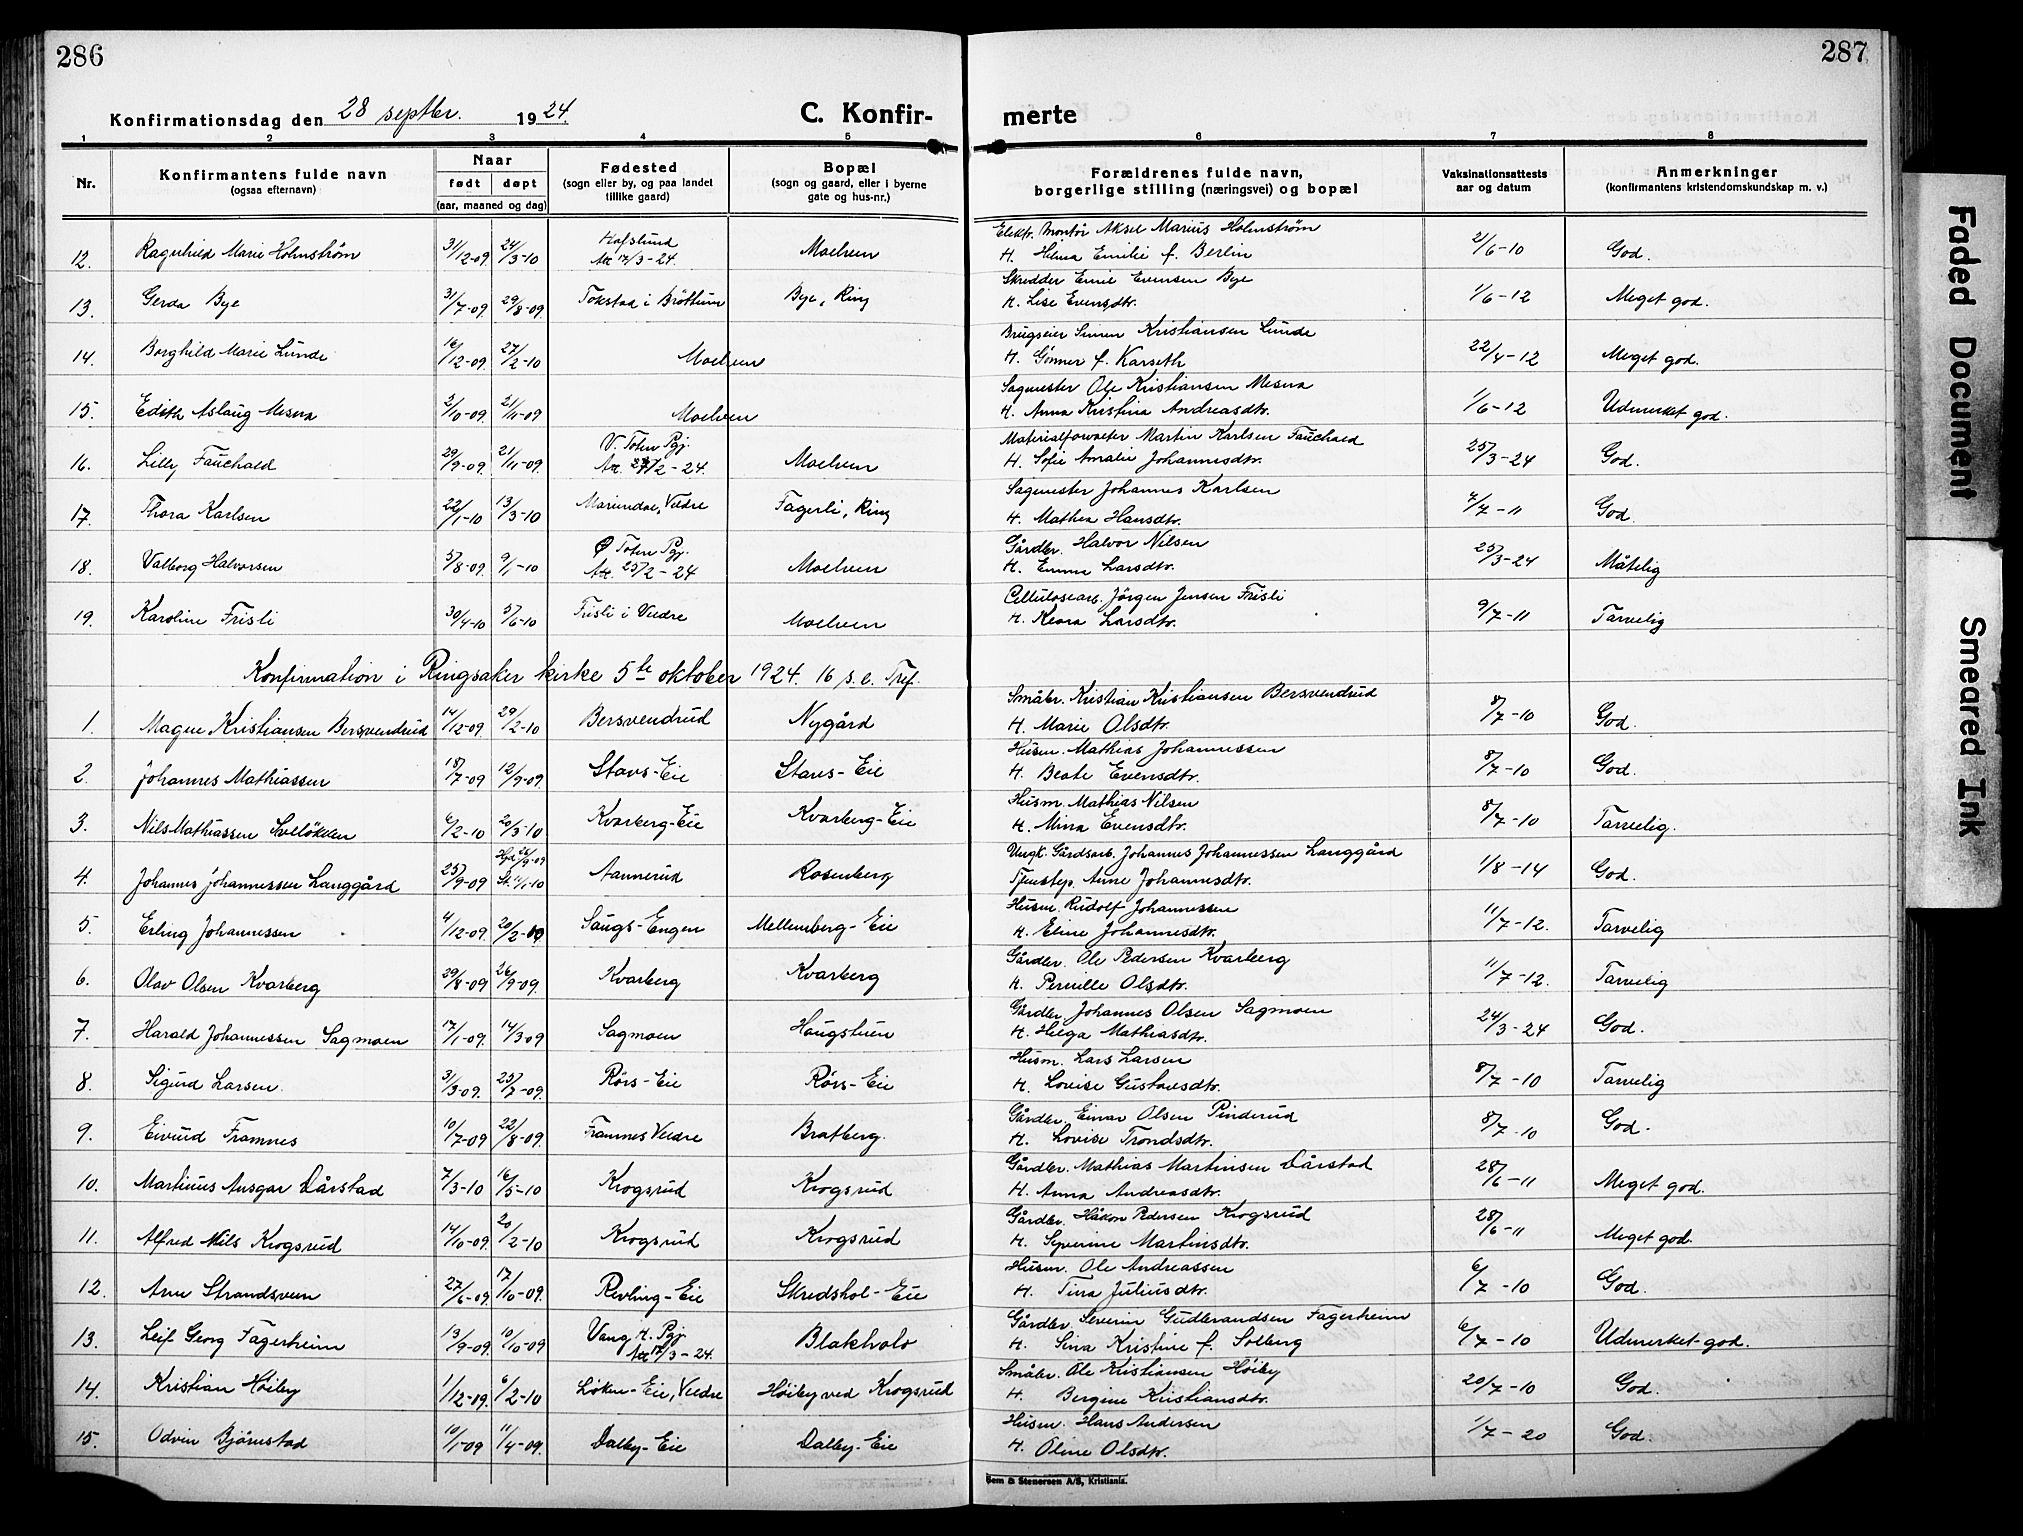 286
287
Konfirmationsdag den 28 septbr. 1924.
C. Konfir-
merte
1 2 3 4 5 6 7 8
Nr.
Konfirmantens fulde navn
(ogsaa efternavn)
Naar
født døpt
(aar, maaned og dag)
Fødested
(sogn eller by, og paa landet
tillike gaard)
Bopæl
(sogn og gaard, eller i byerne
gate og hus-nr.)
Forældrenes fulde navn,
borgerlige stilling (næringsvei) og bopæl
Vaksinationsattests
aar og datum
Anmerkninger
(konfirmantens kristendomskundskap m. v.)
12. Ragnhild Marie Holmstrøm 31/12-09. 24/3-10 Hafslund Att 17/3-24. Moelven Elektr. montør Aksel Marius Holmstrøm 2/6-10 God.
H. Helma Emilie f. Berlin
13. Gerda Bye 31/7-09. 29/8-09. Tokstad i Brøttum Bye, Ring Skredder Emil Evensen Bye 1/6-12 Meget god.
H. Lise Evensdtr.
14. Borghild Marie Lunde 16/12-09. 27/2-10 Moelven Brugseier Simen Kristiansen Lunde 22/4-12 Meget god.
H. Gønner f. Karseth
15. Edith Aslaug Mesna 2/10-09. 21/11-09 Moelven Sagmester Ole Kristiansen Mesna 1/6-12 Udmerket god.
H. Anna Kristina Andreasdtr.
16. Lilly Fauchald 29/9-09. 21/11-09. V. Toten Pgj. Att. 27/2-24. Moelven Materialforvalter Martin Karlsen Fauchald 25/3-24 God.
H. Sofie Amalie Johannesdtr.
17. Thora Karlsen 22/1-10 13/3-10 Mariendal, Veldre Fagerli, Ring Sagmester Johannes Karlsen 4/7-11 God.
H. Mathea Hansdtr.
18. Valborg Halvorsen 5/8-09. 9/1-10 Ø Toten Pgj. Att. 25/2-24 Moelven Gårdbr. Halvor Nilsen 25/3-24 Måtelig
H. Emma Larsdtr.
19. Karoline Frisli 30/4-10 5/6-10 Frisli i Veldre Moelven Cellulosearb. Jörgen Jensen Frisli 9/7-11 Tarvelig
H. Klara Larsdtr.
Konfirmation i Ringsaker kirke 5te oktober 1924. 16 s.e. Tref.
1. Magne Kristiansen Bersvendrud 14/12-09. 29/2-10 Bersvendrud Nygård Småbr. Kristian Kristiansen Bersvendrud 8/7-10 God.
H. Marie Olsdtr.
2. Johannes Mathiassen 18/7-09 12/9-09. Stavs-Eie Stavs-Eie Husm. Mathias Johannessen 8/7-10 God.
H. Beate Evensdtr.
3. Nils Mathiassen Sveløkken 6/2-10 20/3-10 Kvarberg-Eie Kvarberg-Eie Husm. Mathias Nilsen 8/7-10 Tarvelig.
H. Mina Evensdtr.
4. Johannes Johannessen Langgård 25/9-09 Hjd 26/9-09 St. 11/1-10 Aannerud Rosenberg Ungk. Gårdsarb. Johannes Johannessen Langgård 1/8-14 God.
Tjenstep. Anne Johannesdtr.
5. Erling Johannessen 4/12-09. 20/2-10 Saugs-Engen Mellemberg-Eie Husm. Rudolf Johannessen 11/7-12. Tarvelig
H. Eline Johannesdtr.
6. Olav Olsen Kvarberg 29/8-09 26/9-09. Kvarberg Kvarberg Gårdbr. Ole Pedersen Kvarberg 11/7-12. Tarvelig
H. Pernille Olsdtr.
7. Harald Johannessen Sagmoen 17/1-09. 14/3-09 Sagmoen Haugstuen Gårdbr. Johannes Olsen Sagmoen 24/3-24 God.
H. Helga Mathiasdtr.
8. Sigurd Larsen 31/3-09. 25/7-09. Rørs-Eie Rørs-Eie Husm. Lars Larsen 8/7-10 Tarvelig
H. Lovise Gustavsdtr.
9. Eivind Framnes 10/7-09 22/8-09. Framnes Veldre Bratberg. Gårdbr. Einar Olsen Pinderud 8/7-10 God.
H. Lovise Trondsdtr.
10. Martinus Ansgar Dårstad 7/3-10 16/5-10 Krogsrud Krogsrud Gårdbr. Mathias Martinsen Dårstad 28/6-11 Meget god.
H. Anna Andreasdtr.
11. Alfred Nils Krogsrud 14/10-09. 20/2-10 Krogsrud Krogsrud Gårdbr. Håkon Pedersen Krogsrud 28/6-11 Meget god.
H. Severine Martinsdtr.
12. Arne Strandsveen 27/6-09 17/10-09. Revling-Eie Skredshol-Eie Husm. Ole Andreassen 6/7-10 God.
H. Tina Juliusdtr.
13. Leif Georg Fagerheim 13/9-09. 10/10-09 Vang, H. Pgj. Att 17/3-24. Blakholv Gårdbr. Severin Gudbrandsen Fagerheim 6/7-10 Udmerket-god.
H. Sina Kristine f. Solberg
14. Kristian Høiby 1/12-09. 6/2-10 Løken-Eie, Veldre Høiby ved Krogsrud Småbr. Ole Kristiansen Høiby 20/7-10 God.
H. Bergine Kristiansdtr.
15. Odvin Bjørnstad 10/1-09 11/4-09. Dalby-Eie Dalby-Eie Husm. Hans Andersen 1/7-20 God.
H. Oline Olsdtr.
Sem & Stenersen A/S, Kristiania.
Faded Document
Smeared Ink